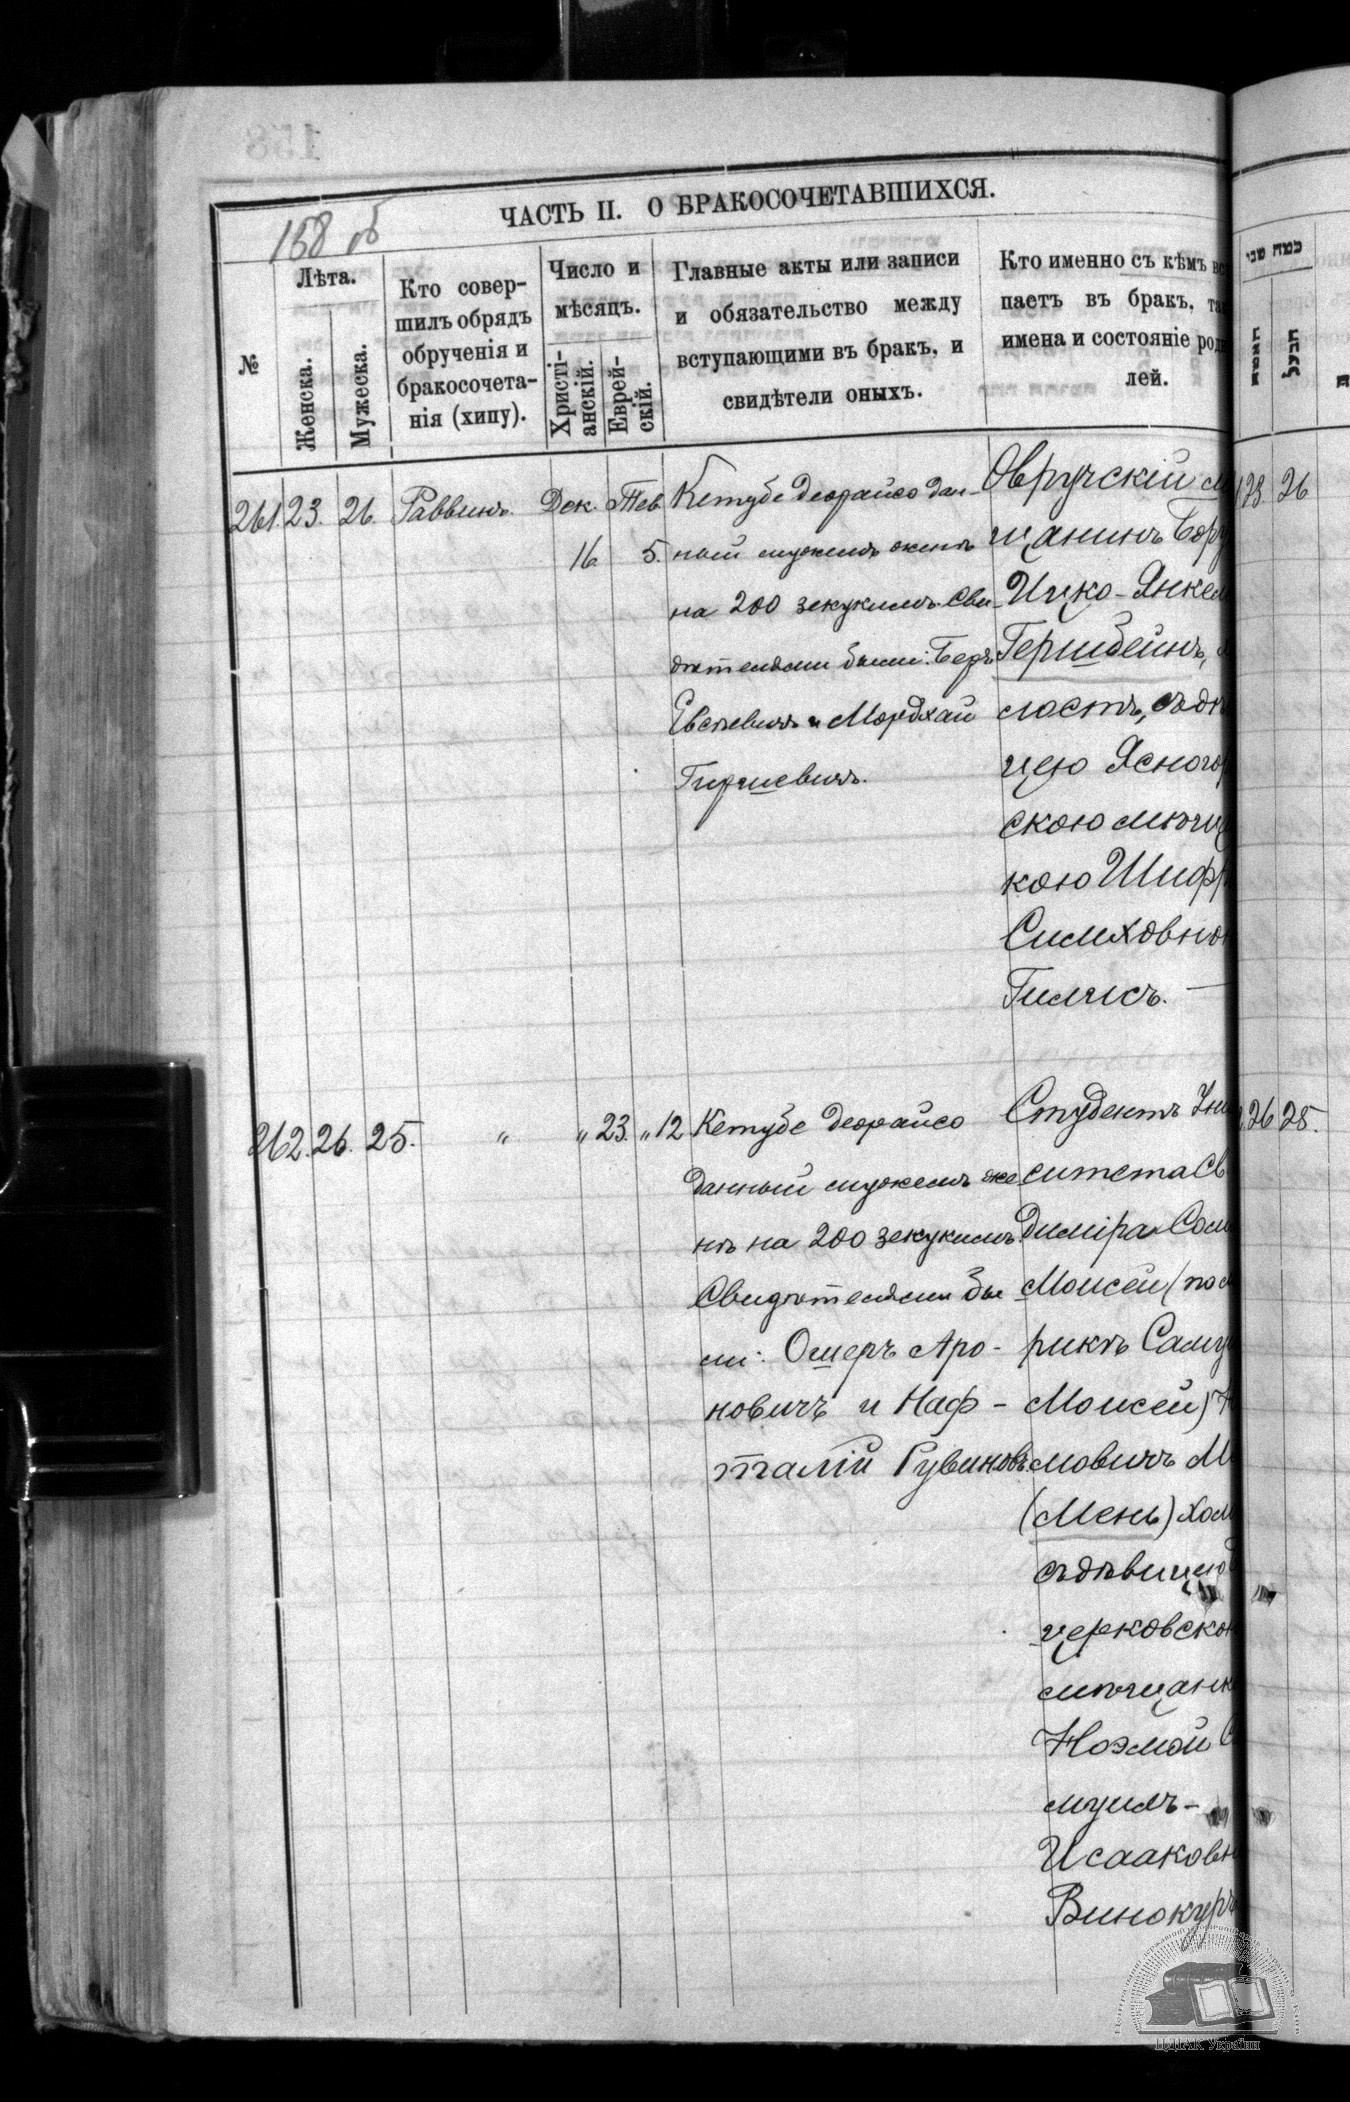 158 об
ЧАСТЬ II. О БРАКОСОЧЕТАВШИХСЯ.
№
Лѣта.
Женска.
Мужеска.
Кто совер-
шилъ обрядъ
обрученія и
бракосочета-
нія (хипу).
Число и
мѣсяцъ.
Христі-
анскій.
Еврей-
скій.
Главные акты или записи
и обязательство между
вступающими въ бракъ, и
свидѣтели оныхъ.
Кто именно съ кѣмъ вс
паетъ въ бракъ, та
имена и состояніе род
лей.
261. 23. 26. Раввинъ. Дек. Тев.
16 5.
Кетубе деорайсо дан-
ный мужемъ женѣ
на 200 зекукимъ. Сви-
дѣтелями были: Беръ
Евсѣевичъ и Мордхай
Гиршевичъ.
Овручскій м
щанинъ Бору
Ицко-Янкел
Герцбейнъ,
лостъ, съ дѣ
цею Ясного
скою мѣщ
кою Шиф
Симховно
Гилисъ. —
262. 26. 25. „ „ 23. „ 12
Кетубе деорайсо
данный мужемъ же
нѣ на 200 зекукимъ.
Свидѣтелями бы
ли: Ошеръ Аро-
новичъ и Наф-
талій Рувиновъ.
Студентъ Уни
ситета Св
димiра Сом
Моисей (по м
рикѣ Саму
Моисей)
мовичъ М
(Мень) хол
съ дѣвицею
церковско
мѣщанк
Ноэмой С
муиль-
Исааковн
Винокуръ
כמה שני
האשה
הבעל
23. 26
26 25.
158
ЦДІАК України